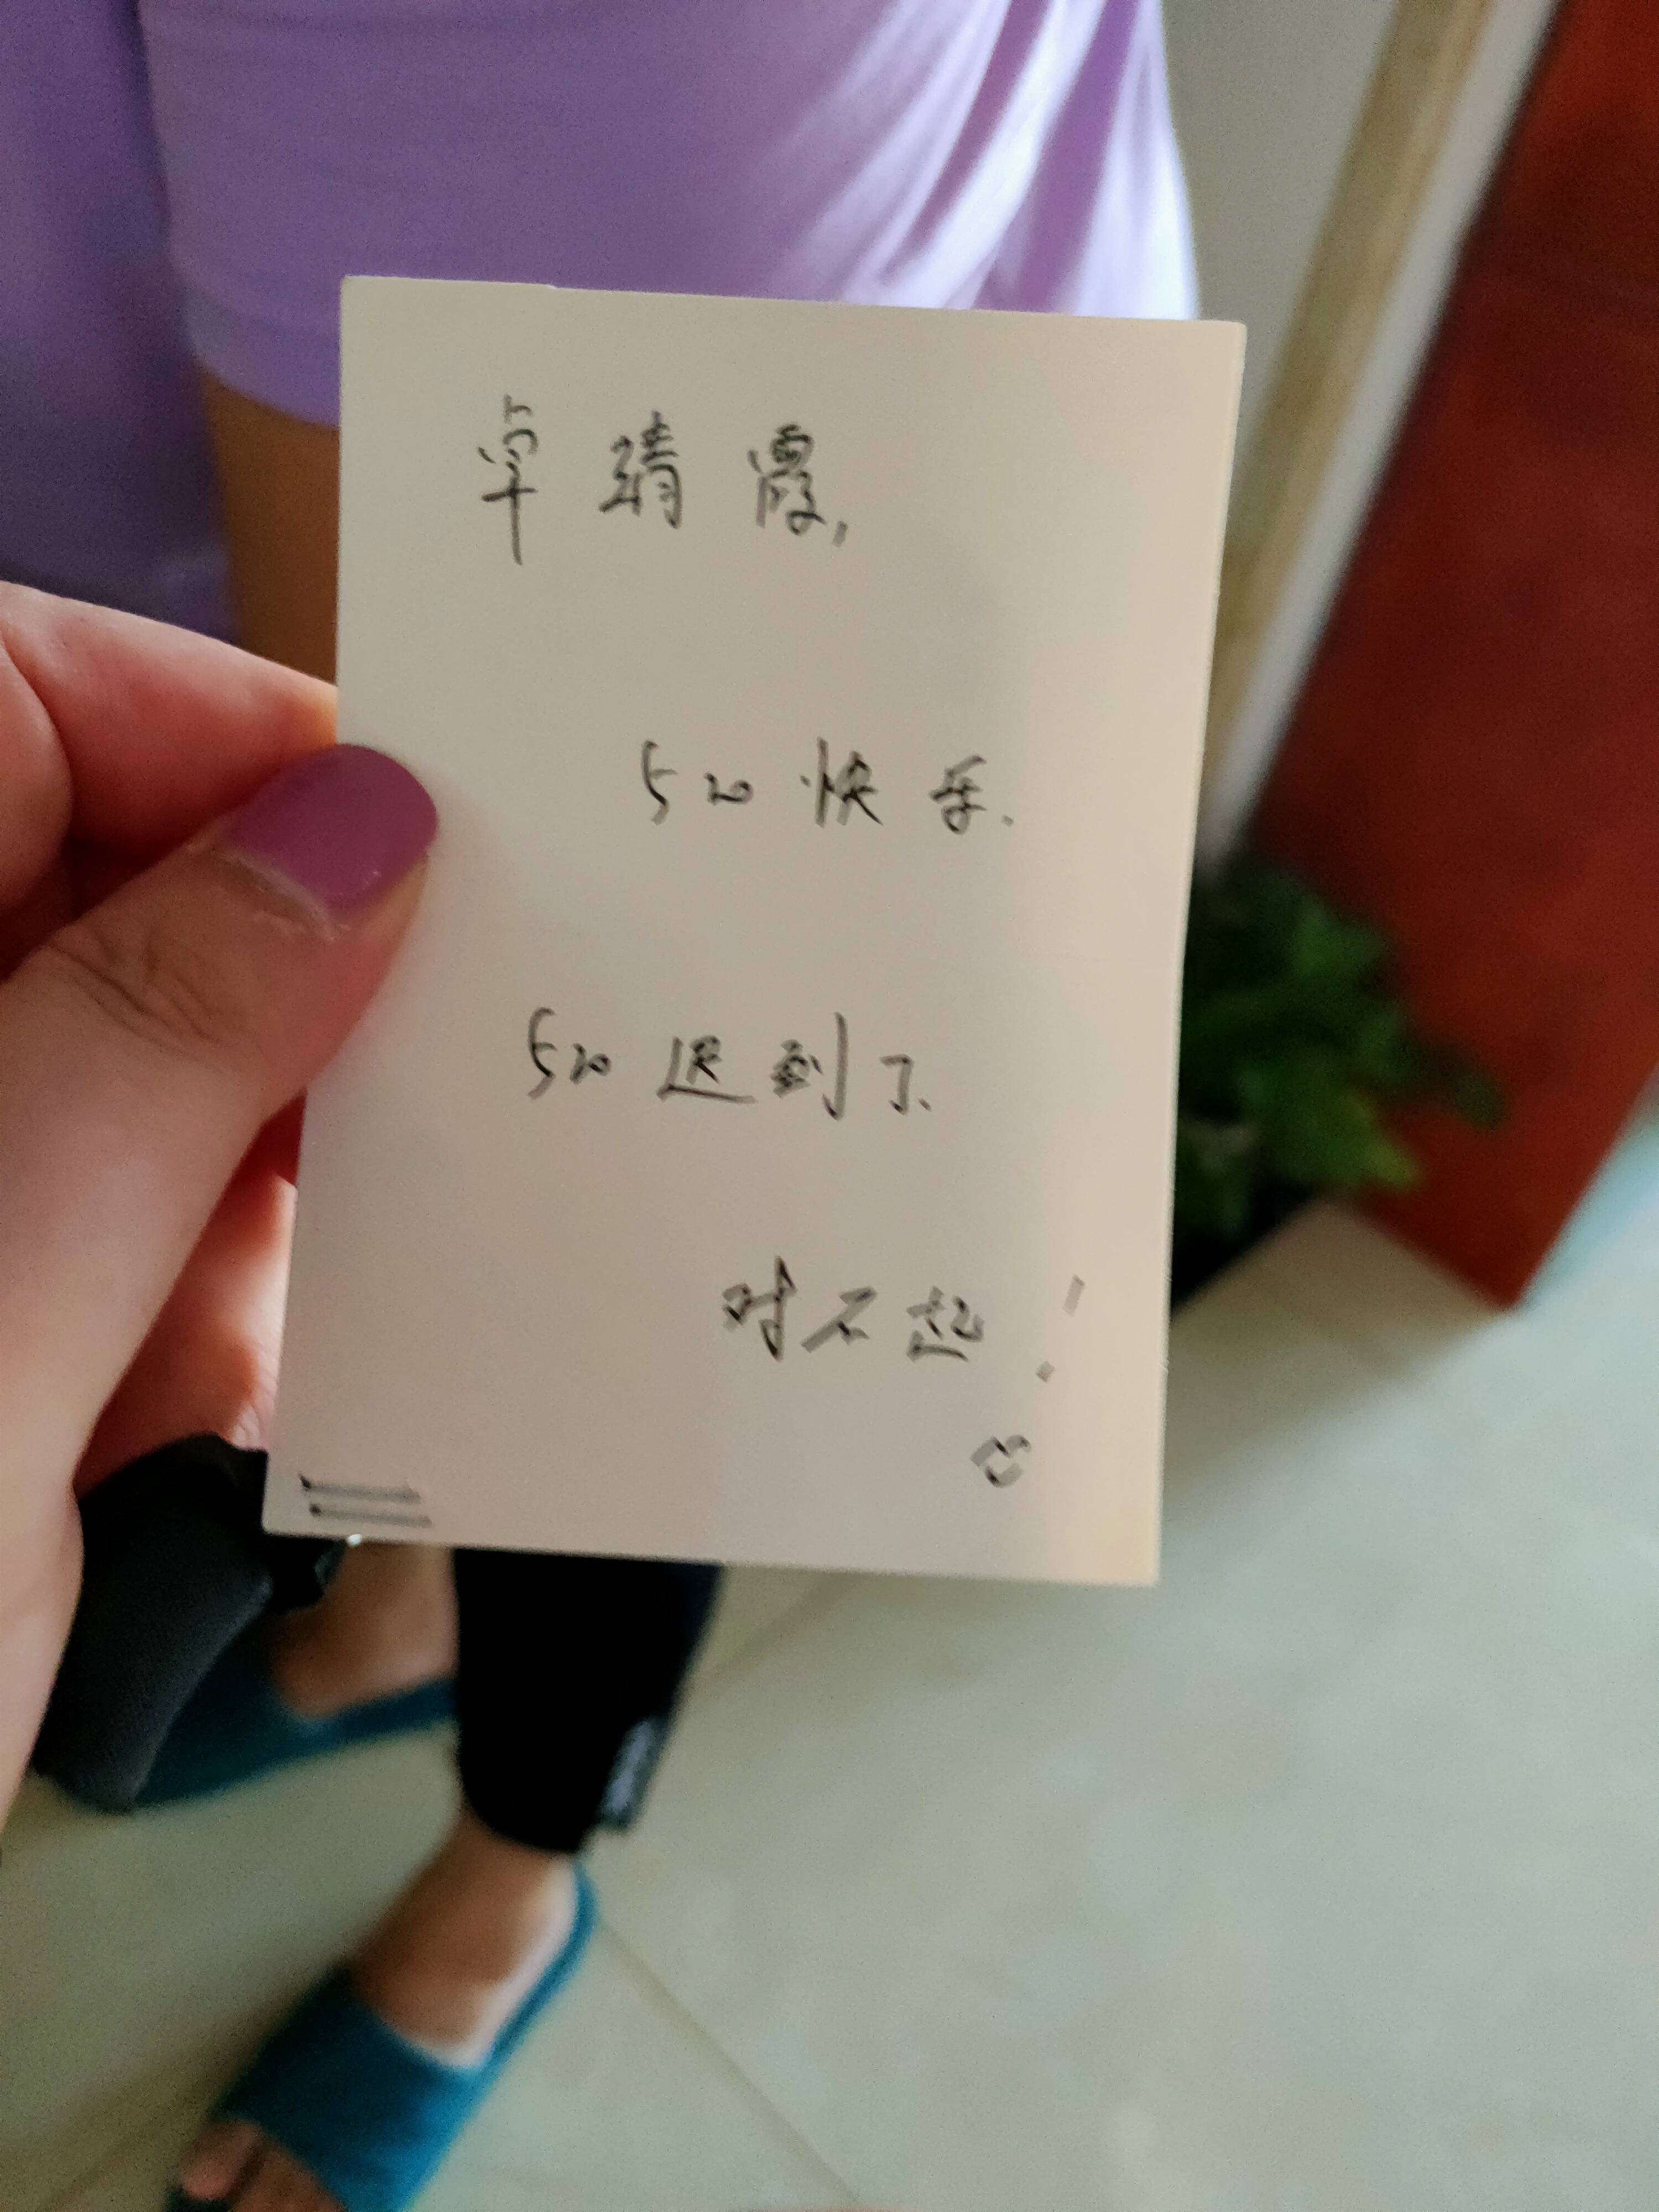 卓晴霞,
520快乐.
520迟到了.
对不起!